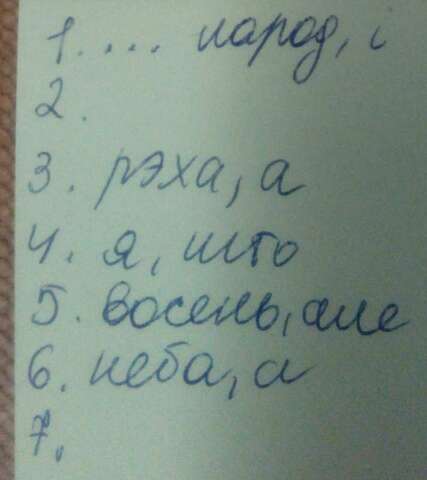 1. ... народ, і
2.
3. рэха, а
4. я, што
5. восень, але
6. неба, а
7.